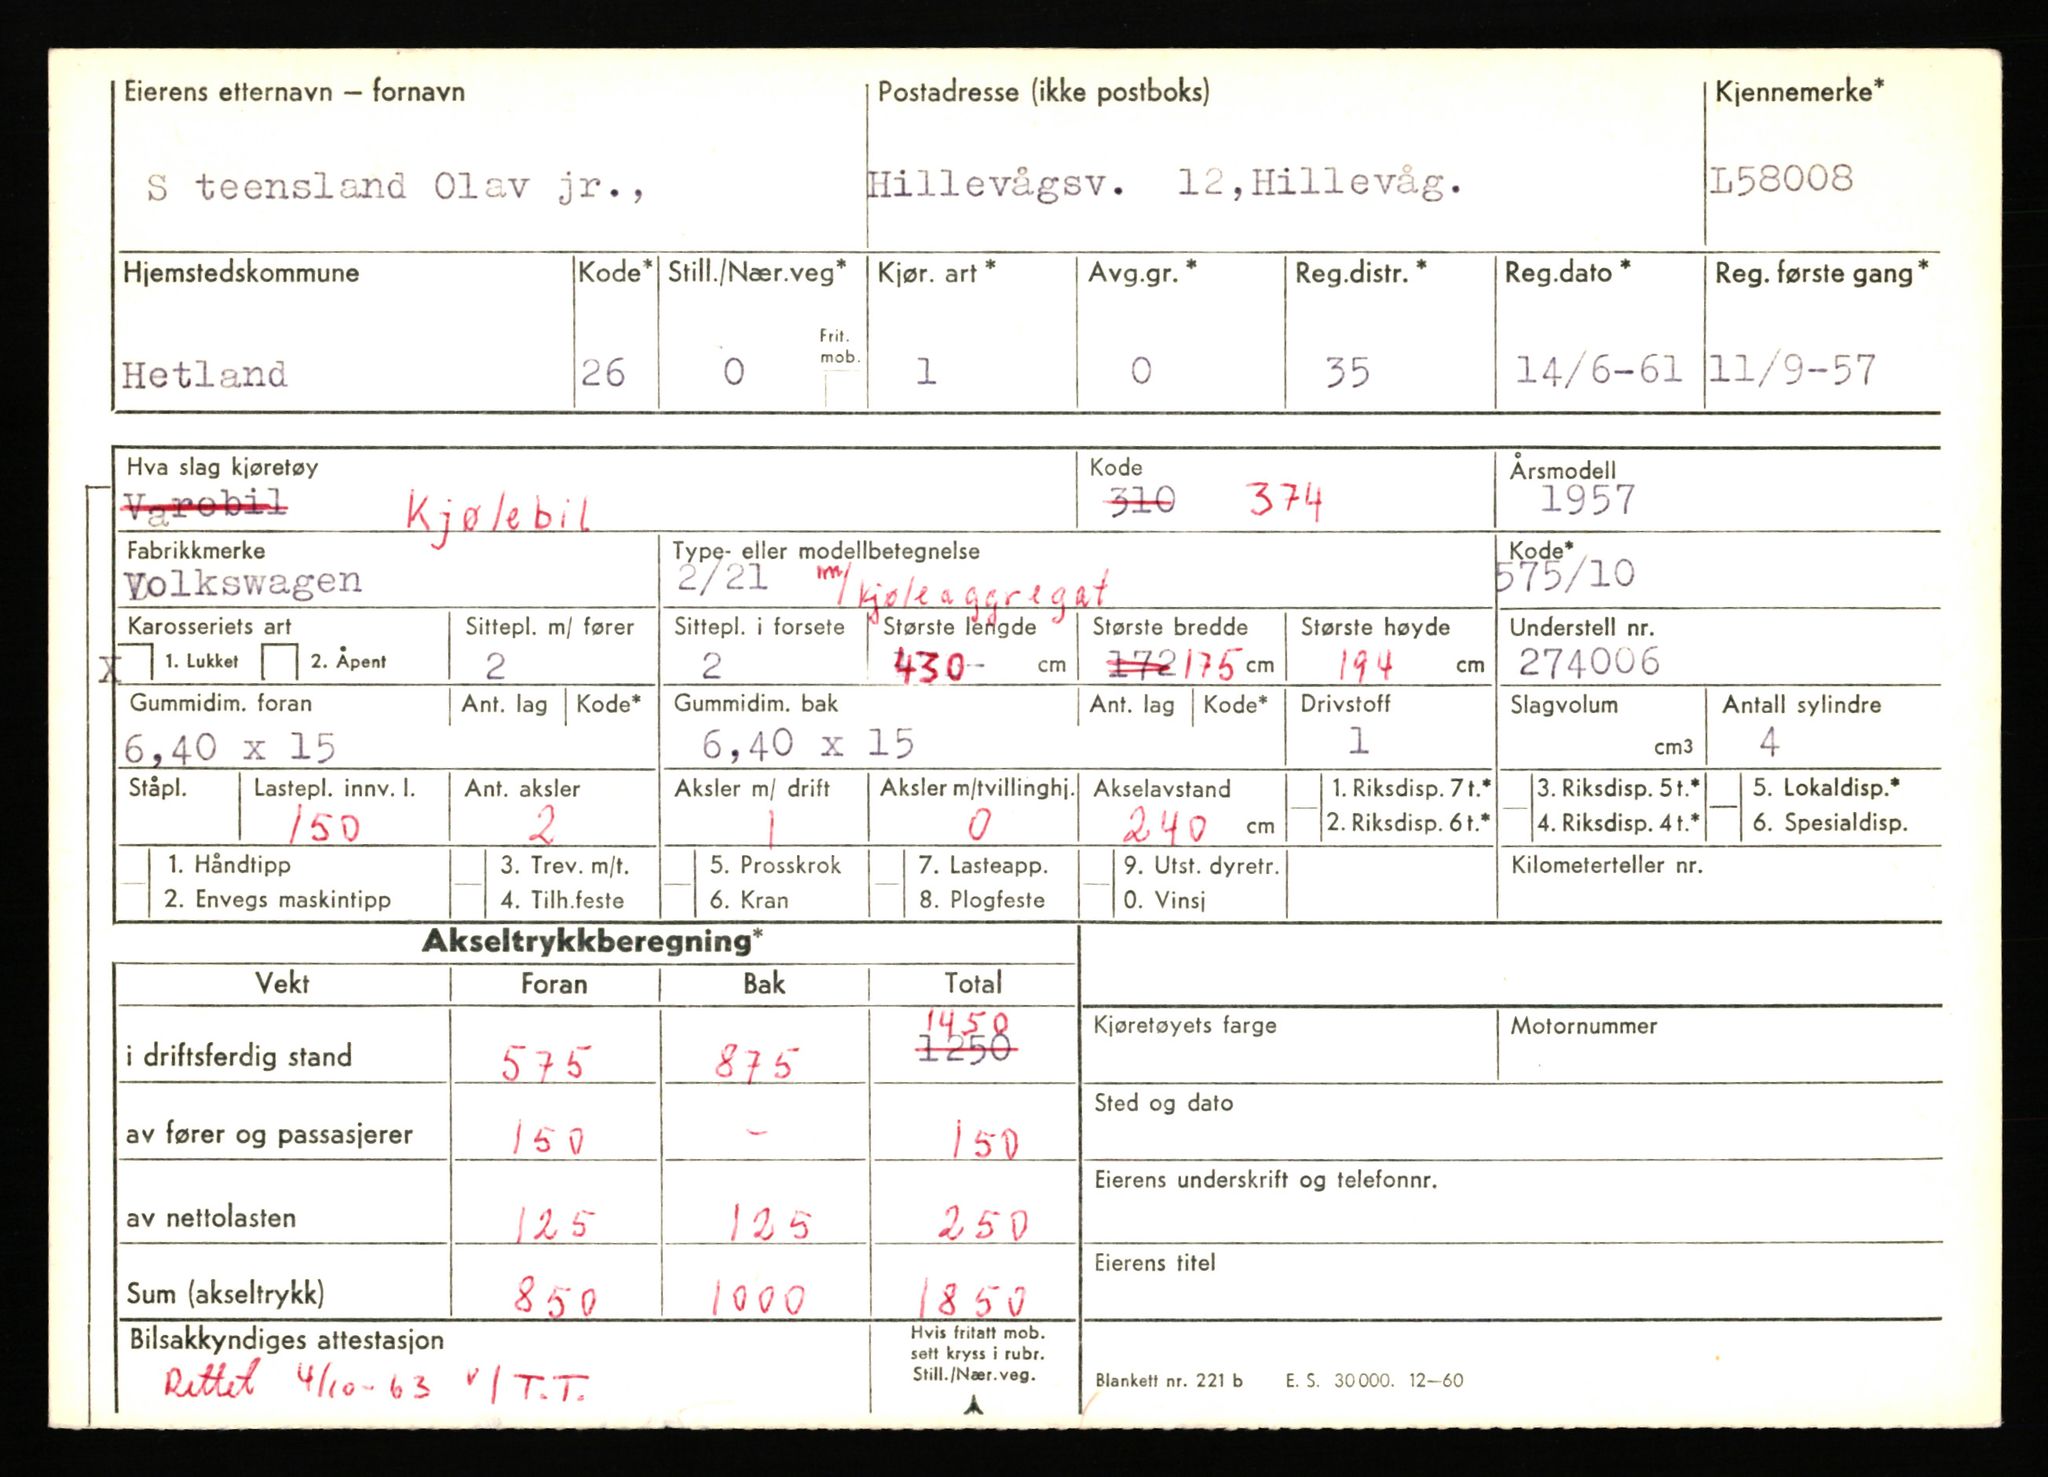 Eierens etternavn – fornavn Postadresse (ikke postboks) Kjennemerke*
S teensland Olav jr., Hillevågsv. 12,Hillevåg. L58008
Hjemstedskommune Kode* Still./Nær.veg* Kjør. art * Avg.gr. * Reg.distr. * Reg.dato * Reg. første gang*
Frit.
mob.
Hetland 26 0 1 0 35 14/6-61 11/9-57
Hva slag kjøretøy Kode Årsmodell
Varebil Kjølebil 310 374 1957
Fabrikkmerke Type- eller modellbetegnelse Kode*
Volkswagen 2/21 m/kjøleaggregat 575/10
Karosseriets art Sittepl. m/ fører Sittepl. i forsete Største lengde Største bredde Største høyde Understell nr.
X 1. Lukket 2. Åpent 2 2 430- cm 172 175 cm 194 cm 274006
Gummidim. foran Ant. lag Kode* Gummidim. bak Ant. lag Kode* Drivstoff Slagvolum Antall sylindre
6,40 x 15 6,40 x 15 1 cm3 4
Ståpl. Lastepl. innv. l. Ant. aksler Aksler m/ drift Aksler m/tvillinghj. Akselavstand 1. Riksdisp. 7 t.* 3. Riksdisp. 5 t.* 5. Lokaldisp.*
150 2 1 0 240 cm 2. Riksdisp. 6 t.* 4. Riksdisp. 4 t.* 6. Spesialdisp.
1. Håndtipp 3. Trev. m/t. 5. Prosskrok 7. Lasteapp. 9. Utst. dyretr. Kilometerteller nr.
2. Envegs maskintipp 4. Tilh.feste 6. Kran 8. Plogfeste 0. Vinsj
Akseltrykkberegning*
Vekt Foran Bak Total
1450
i driftsferdig stand 575 875 1250
Kjøretøyets farge Motornummer
Sted og dato
av fører og passasjerer 150 - 150
Eierens underskrift og telefonnr.
av nettolasten 125 125 250
Eierens titel
Sum (akseltrykk) 850 1000 1850
Bilsakkyndiges attestasjon Hvis fritatt mob.
sett kryss i rubr.
Still./Nær.veg.
Rettet 4/10-63 v/ T.T.
Blankett nr. 221 b E. S. 30 000. 12–60